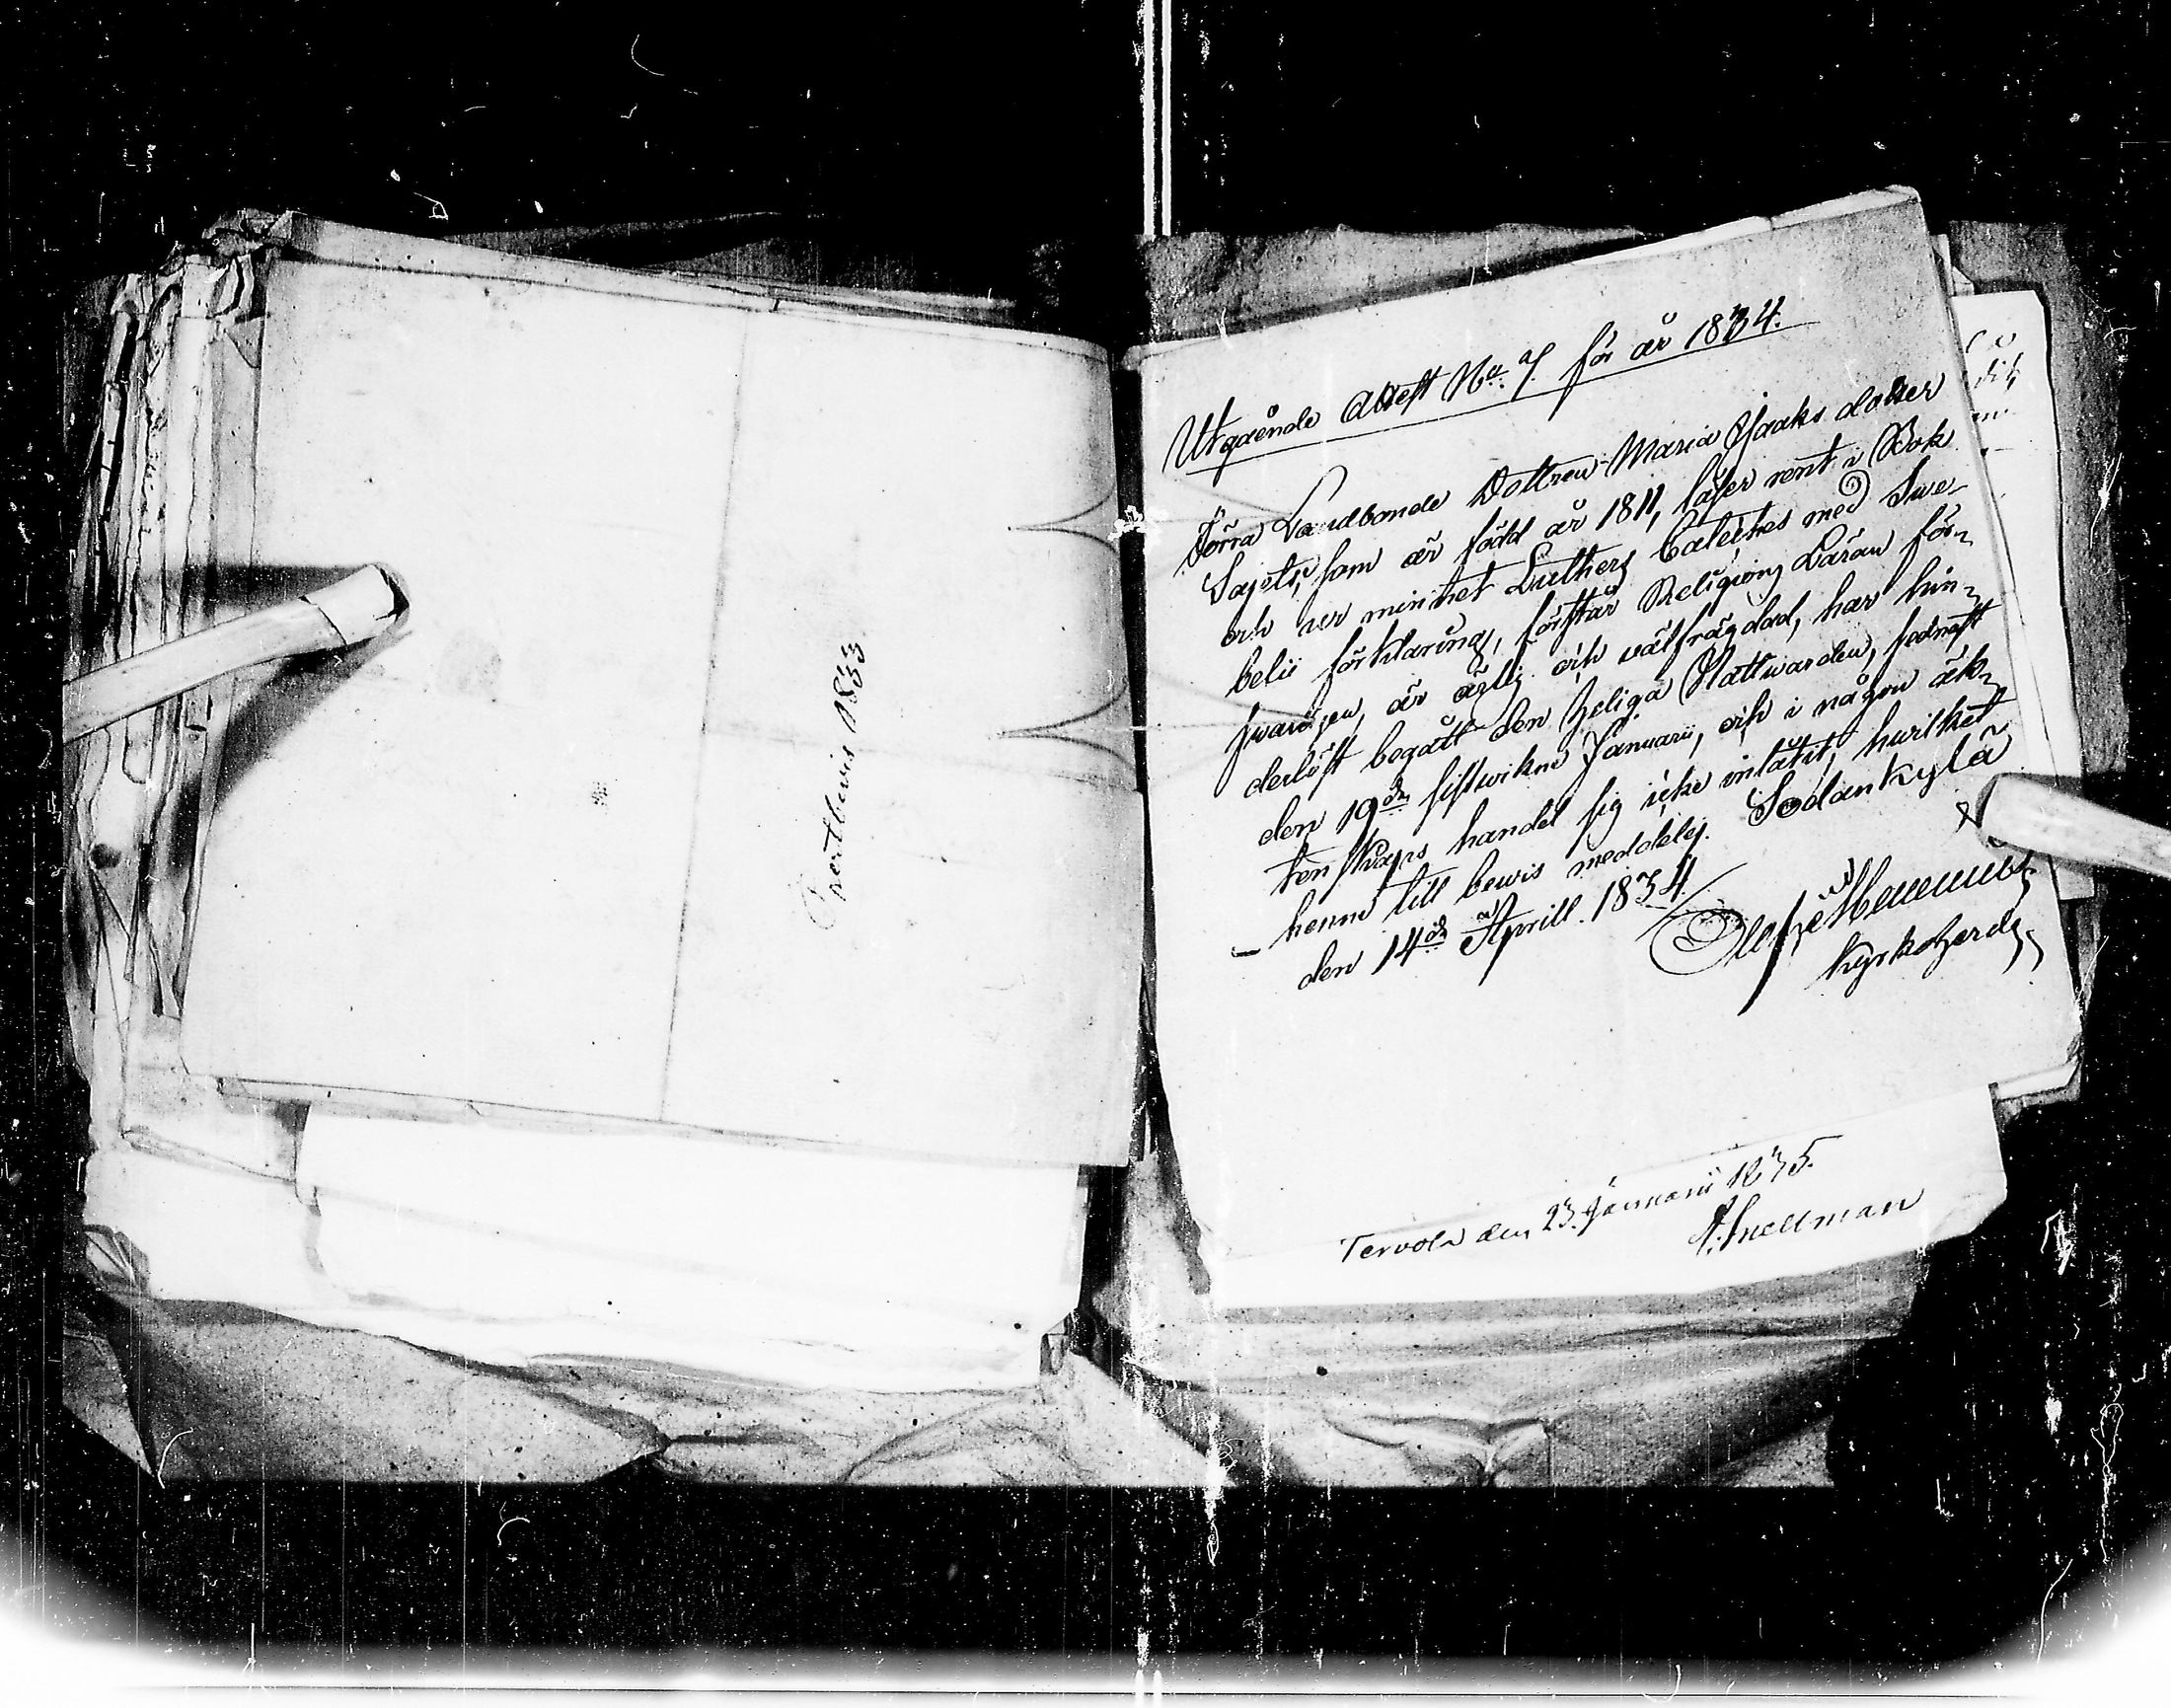 Inertbevis 1833
Utgående Attest No. 7. för år 1834.
Förra Landbonde Dottren Maria Jaaks dotter
Sajets, som är född år 1811, läser rent i Bok
och ur minnet Luthers Cateches med Swe-
belii förklaring, förstår Religions Läran för-
swarligen, är ärlig och wälfrägdad, har hin-
derlöst begått den heliga Nattwarden, sednast
den 19de sistwikne Januarii, och i någon äk-
tenskaps handel sig icke inlåtit; hwilket
henne till bewis meddelas. Sodankylä
den 14de Aprill. 1834.
Kyrkoherde.
Tervola den 23. Januarii 1835.
A. Snellman